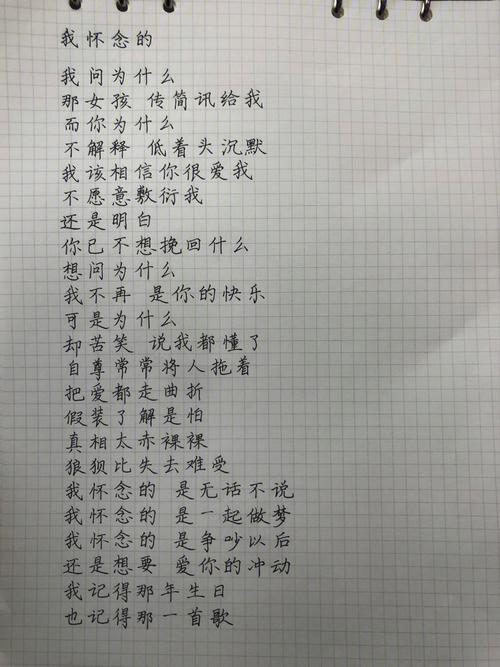 我怀念的
我问为什么
那女孩 传简讯给我
而你为什么
不解释 低着头沉默
我该相信你很爱我
不愿意敷衍我
还是明白
你已不想挽回什么
想问为什么
我不再 是你的快乐
可是为什么
却苦笑 说我都懂了
自尊常常将人拖着
把爱都走曲折
假装了解是怕
真相太赤裸裸
狼狈比失去难受
我怀念的 是无话不说
我怀念的 是一起做梦
我怀念的 是争吵以后
还是想要 爱你的冲动
我记得那年生日
也记得那一首歌